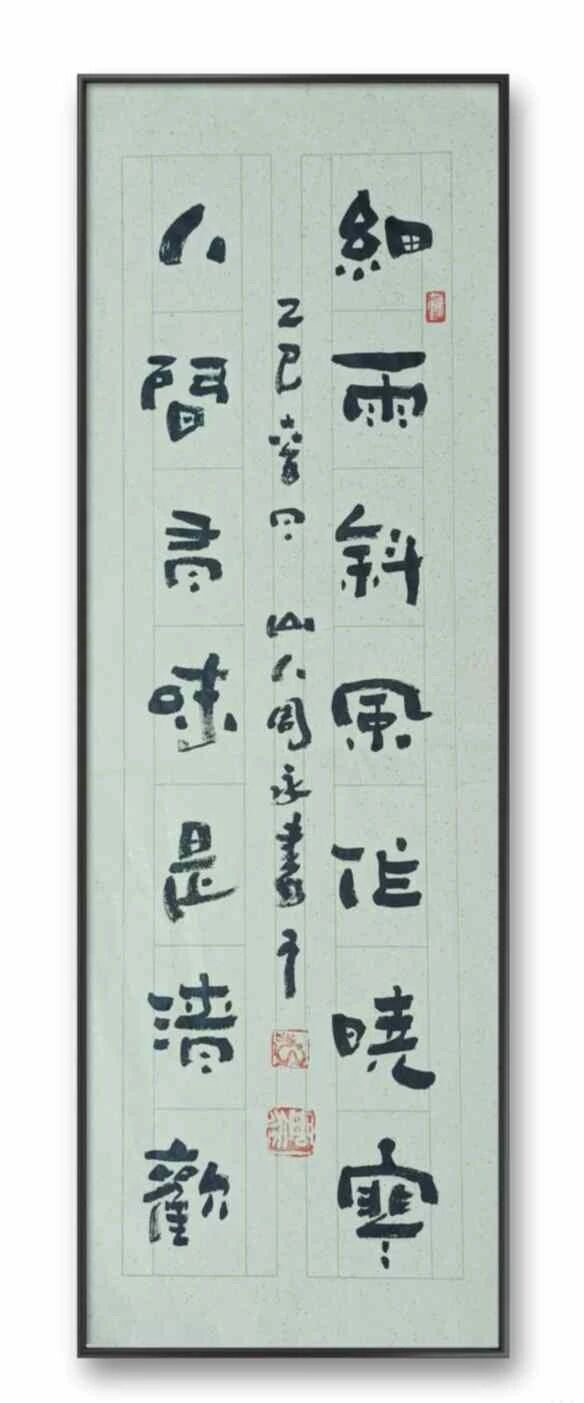 細雨斜風作曉寒
人間有味是清歡
乙巳春月 山人周永書于